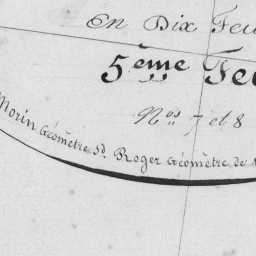 En Dix Feu
5ème Feu
Nos 7 et 8
Morin Géomètre sd. Roger Géomètre de 1